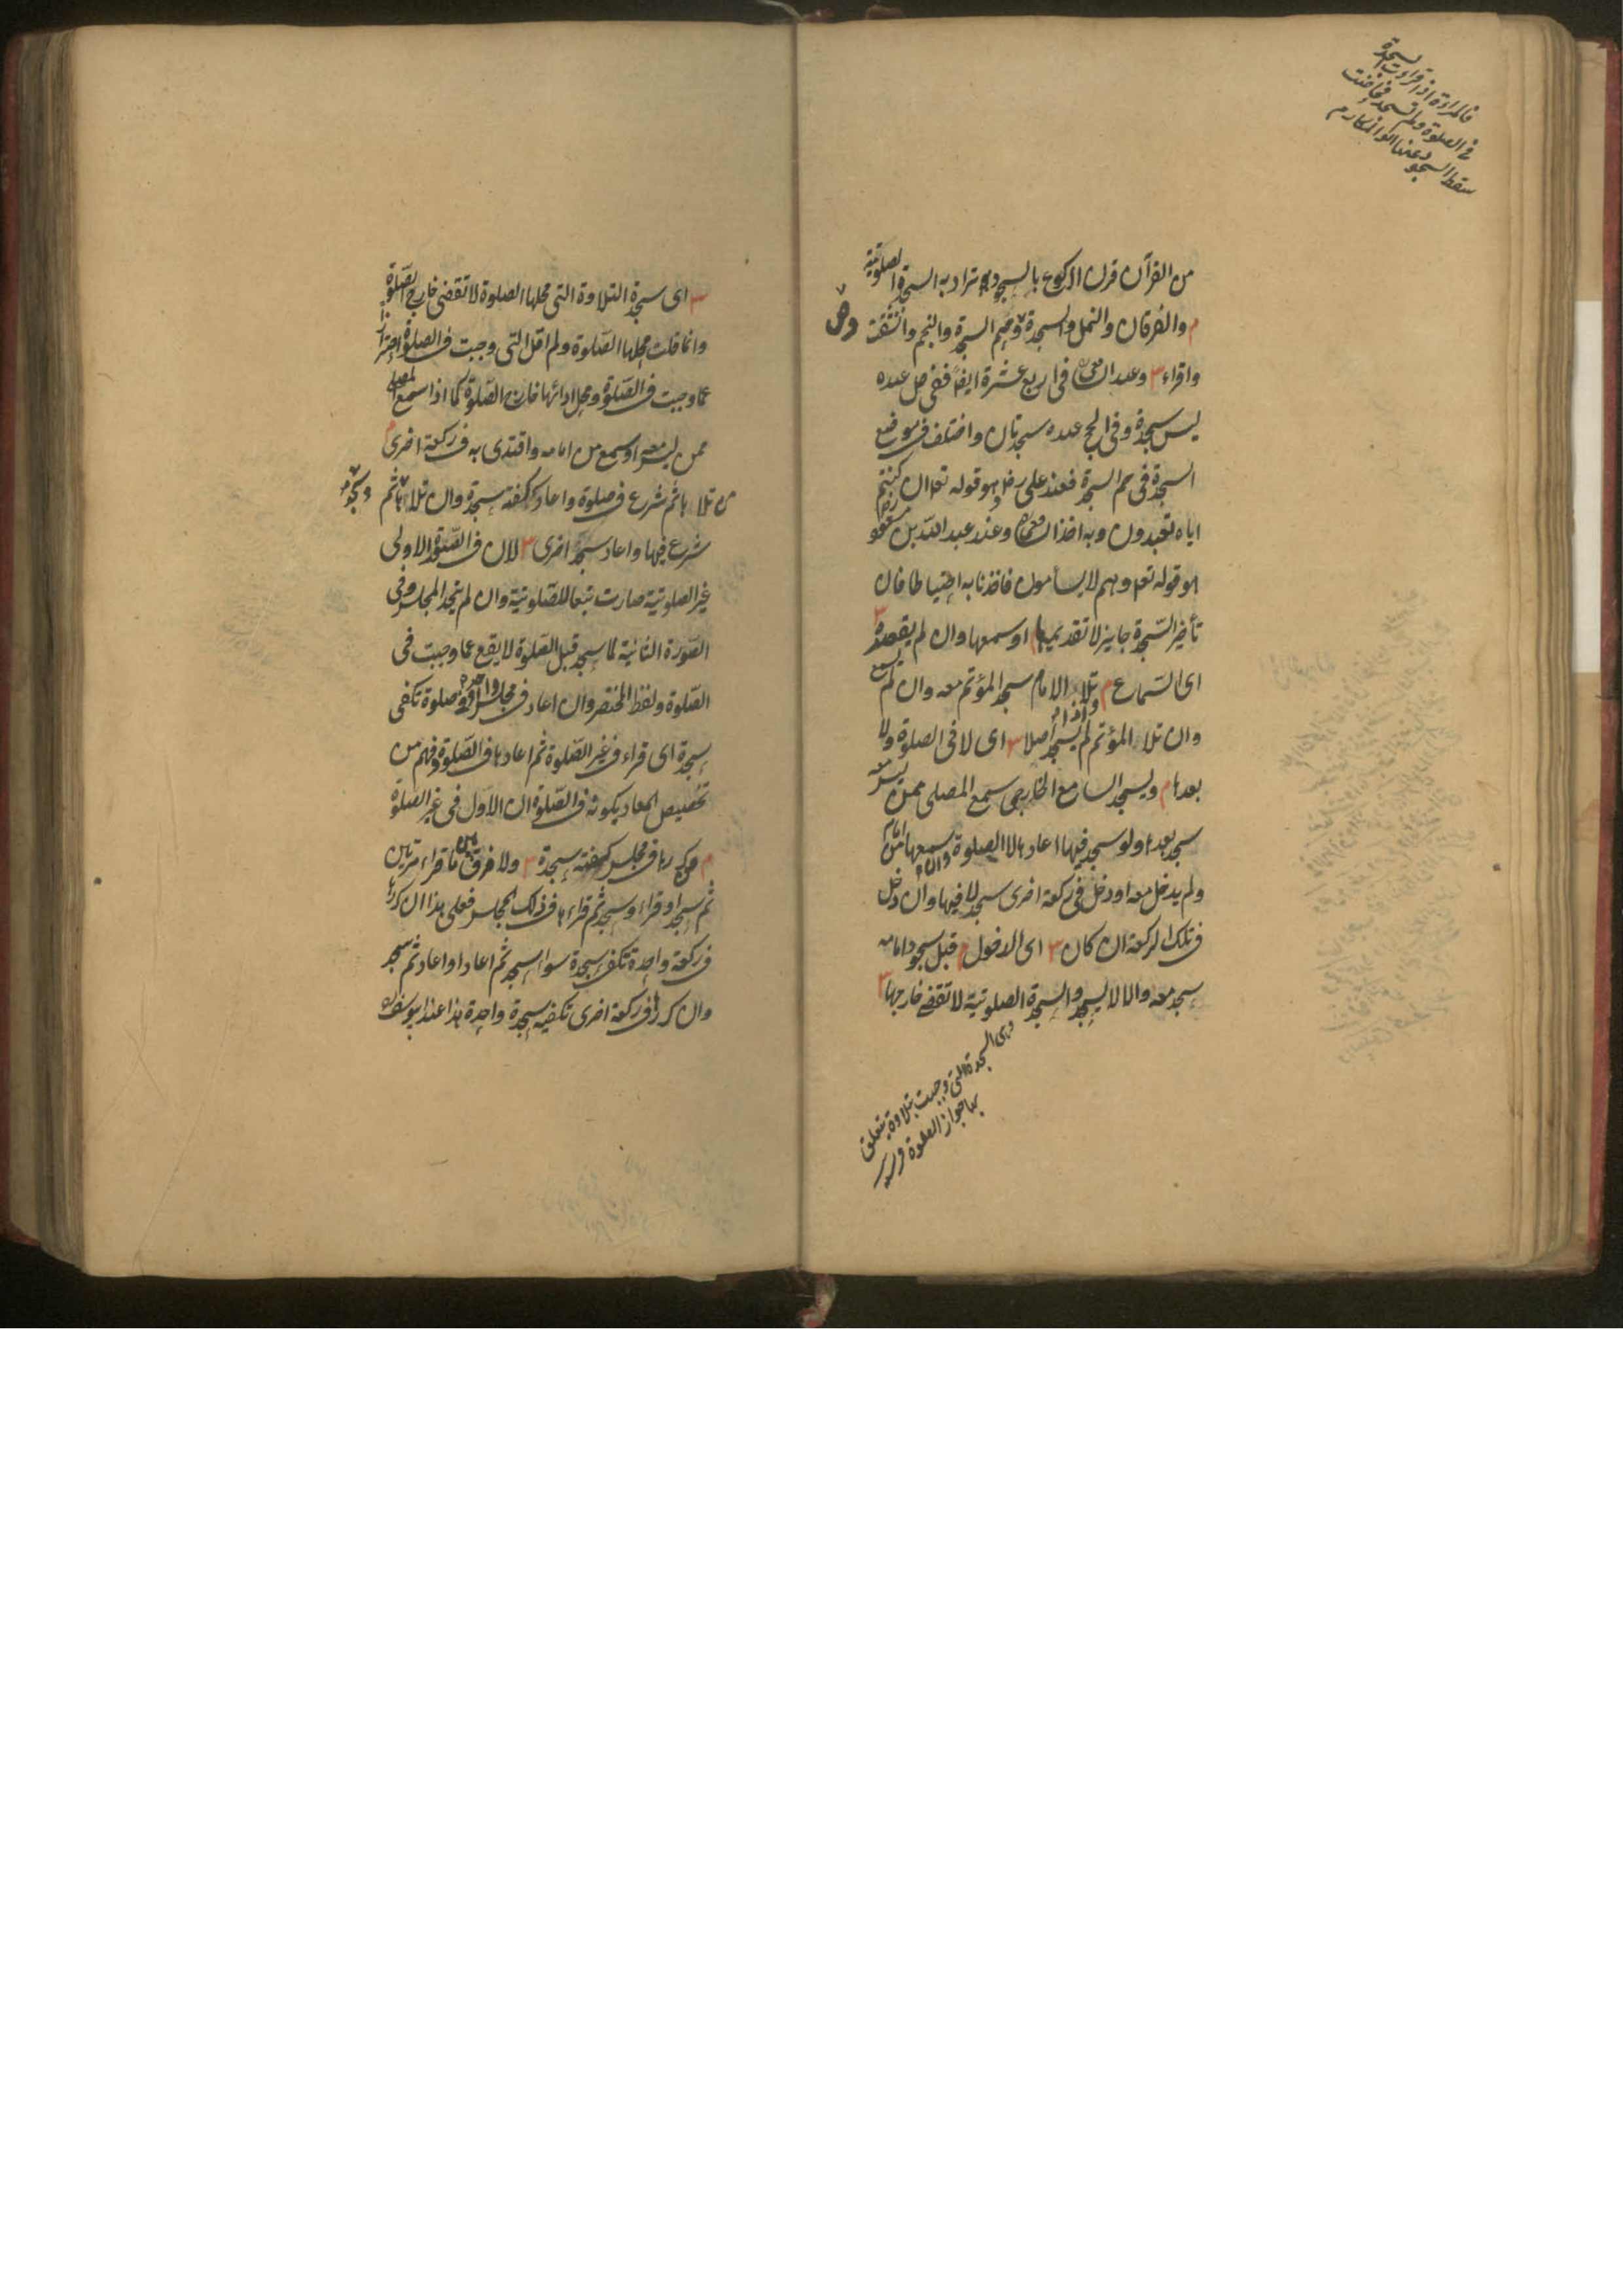 فالمراءة اذا قراءت السجدة
في الصلوة ولم تسجد فحاضت
سقط السجود عنها ابو المكارم
من القرآن قرن الركوع بالسجود يراد به السجدة الصلوتية
م والفرقان والنمل والسجدة وص وحم السجدة والنجم وانشقت
واقراء ش وعند الشافعي في اربع عشرة ايضا ففي ص عنده
ليس سجدة وفي الحج عنده سجدتان واختلف في موضع
السجدة في حم السجدة فعند علي رض هو قوله تع ان كنتم
اياه تعبدون وبه اخذ الشافعي وعند عبد الله بن مسعود رض
هو قوله تع وهم لا يسأمون فاخذنا به احتياطا فان
تأخير السجدة جايز لا تقديمها م او سمعها وان لم يقصده ش
اى السماع م واذا تلا الامام سجد المؤتم معه وان لم يسمع
وان تلا المؤتم لم يسجد اصلا ش اى لا في الصلوة ولا
بعدها م ويسجد السامع الخارجي سمع المصلى ممن ليس معه
سجد بعدها ولو سجد فيها اعادها لا الصلوة وان سمعها من امام
ولم يدخل معه او دخل في ركعة اخرى سجد لا فيها وان دخل
في تلك الركعة ان كان ش اى الدخول م قبل سجود امامه
سجد معه والا لا يسجد والسجدة الصلوتية لا تقضى خارجها
وهى السجدة التى وجبت بتلاوة يتعلق
بها جواز الصلوة
ش اى سجدة التلاوة التى محلها الصلوة لا تقضى خارج الصلوة
وانما قلت محلها الصلوة ولم اقل التى وجبت في الصلوة احترازا
عما وجبت في الصلوة ومحل ادائها خارج الصلوة كما اذا سمع المصلى
ممن ليس معه او سمع من امامه واقتدى به في ركعة اخرى م
من تلاها ثم شرع في صلوة واعاد كفته سجدة وان تلاها وسجد ثم
شرع فيها واعاد سجد اخرى ش لان في الصورة الاولى
غير الصلوتية صارت تبعا للصلوتية وان لم يتحد المجلس وفي
الصورة الثانية لما سجد قبل الصلوة لا يقع عما وجبت في
الصلوة ولفظ المختصر وان اعاد في مجلس واحد او في صلوة تكفى
سجدة اى قراء في غير الصلوة ثم اعادها في الصلوة وفهم من
تخصيص المعاد بكونه في الصلوة ان الاول في غير الصلوة
م وكررها في مجلس كفته سجدة ش ولا فرق بين ما قراء مرتين
ثم سجد او قراء وسجد ثم قراءها في ذلك المجلس فعلى هذا ان كررها
في ركعة واحدة تكفى سجدة سواء سجد ثم اعاد او اعاد ثم سجد
وان كررها في ركعة اخرى تكفيه سجدة واحدة هذا عند ابي يوسف